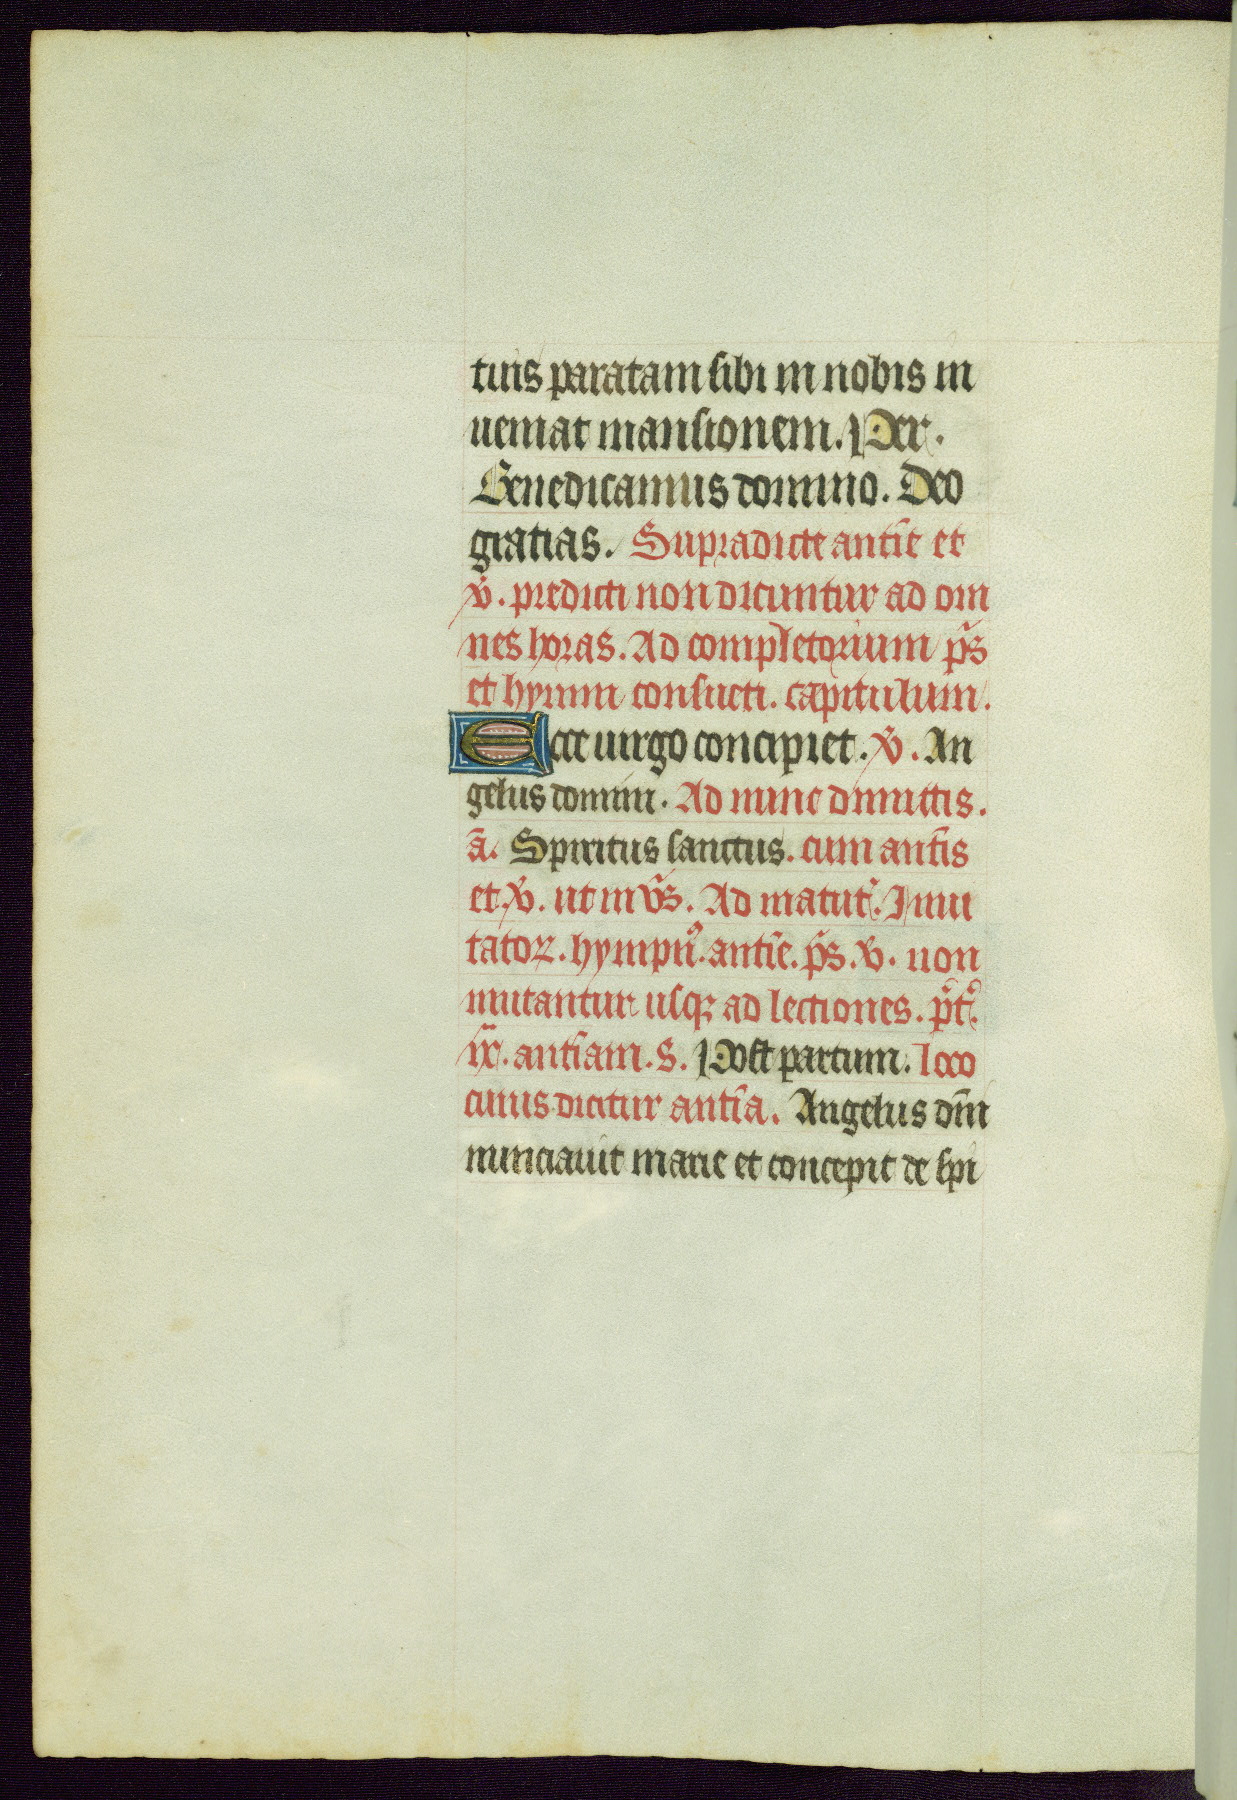 tuis paratam sibi in nobis in
ueniat mansionem. Per.
Benedicamus domino. Deo
gratias. Supradicte antiē et
v̄. predicti non dicuntur ad om
nes horas. Ad completorium p̄s
et hymni consueti. capitulum.
Ecce uirgo concipiet. v̄. An
gelus domini. Ad nunc dimittis.
ā. Spiritus sanctus. cum antīs
et. v̄. ut in v̄s. Ad matut̄. Inui
tatoꝝ. hympn̄ꝰ. antīe. p̄s. v̄. non
mutantur usqꝫ ad lectiones. p̄tꝰ.
ix. antīam. s. Post partum. loco
cuius dicitur antīa. Angelus dn̄i
nunciauit marie et concepit de spi